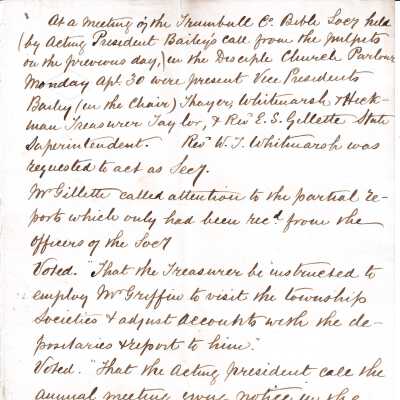 At a meeting of the Trumbull Co. Bible Socy held
(by Acting President Bailey's call from the pulpits
on the previous day,) in the Disciple Church Parlour
Monday Apl. 30 were present Vice Presidents
Bailey (in the Chair) Thayer, Whitmarsh & Heck-
man Treasurer Taylor, & Revd E. S. Gillette State
Superintendent. Revd W. T. Whitmarsh was
requested to act as Secy.
Mr Gillette called attention to the partial re-
ports which only had been recd from the
officers of the Socy
Voted. "That the Treasurer be instructed to
employ Mr Griffin to visit the township
Societies & adjust accounts with the de-
positaries & report to him."
Voted. "That the Acting president call the
annual meeting, giving notice in the